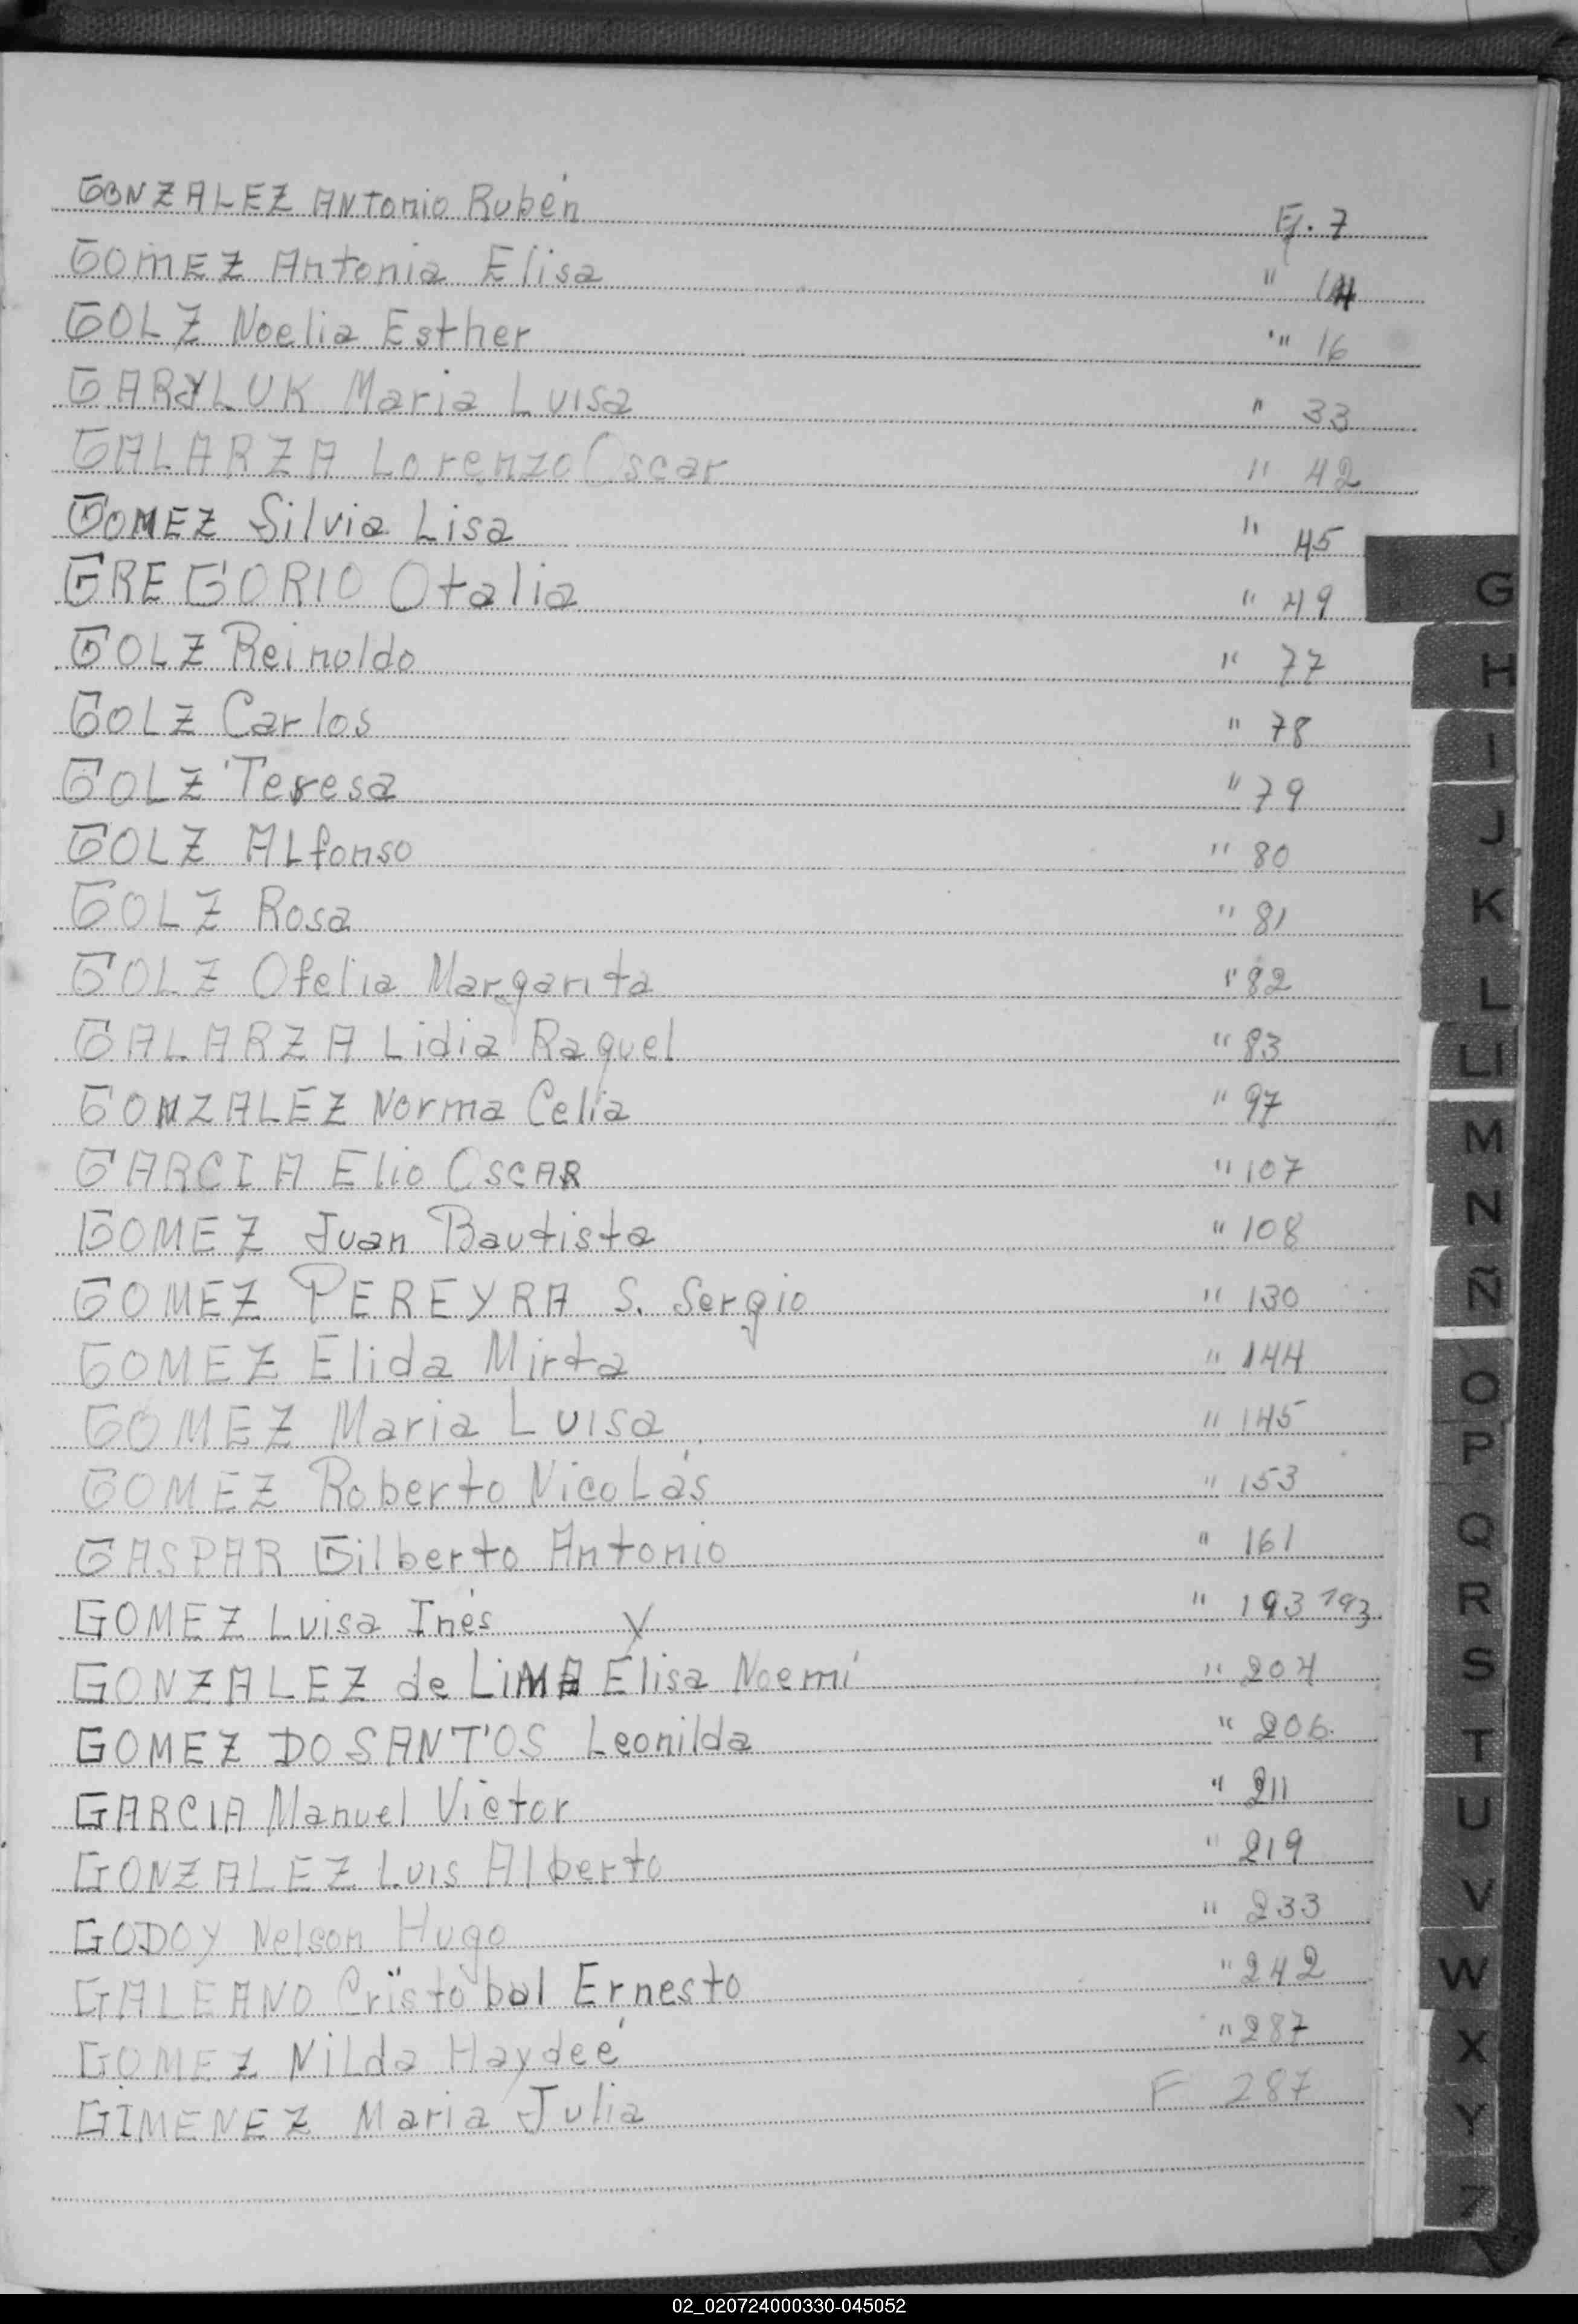 GONZALEZ ANtonio Rubén Fj. 7
GOMEZ Antonia Elisa " 14
GOLZ Noelia Esther " 16
GARYLUK Maria Luisa " 33
GALARZA Lorenzo Oscar " 42
GOMEZ Silvia Lisa " 45
GREGORIO Otalia " 49
GOLZ Reinoldo " 77
GOLZ Carlos " 78
GOLZ Teresa " 79
GOLZ ALfonso " 80
GOLZ Rosa " 81
GOLZ Ofelia Margarita " 82
GALARZA Lidia Raquel " 83
GONZALEZ Norma Celia " 97
GARCIA Elio OSCAR " 107
GOMEZ Juan Bautista " 108
GOMEZ PEREYRA S. Sergio " 130
GOMEZ Elida Mirta " 144
GOMEZ Maria Luisa " 145
GOMEZ Roberto NicoLás " 153
GASPAR Gilberto Antonio " 161
GOMEZ Luisa Inés y " 193 193
GONZALEZ de LiMA Elisa Noemí " 204
GOMEZ DO SANTOS Leonilda " 206
GARCIA Manuel Victor " 211
GONZALEZ Luis Alberto " 219
GODOY Nelson Hugo " 233
GALEANO Cristobal Ernesto " 242
GOMEZ NiLda Haydeé " 287
GIMENEZ Maria Julia F 287
G
H
I
J
K
L
LI
M
N
Ñ
O
P
Q
R
S
T
U
V
W
X
Y
Z
02_020724000330-045052